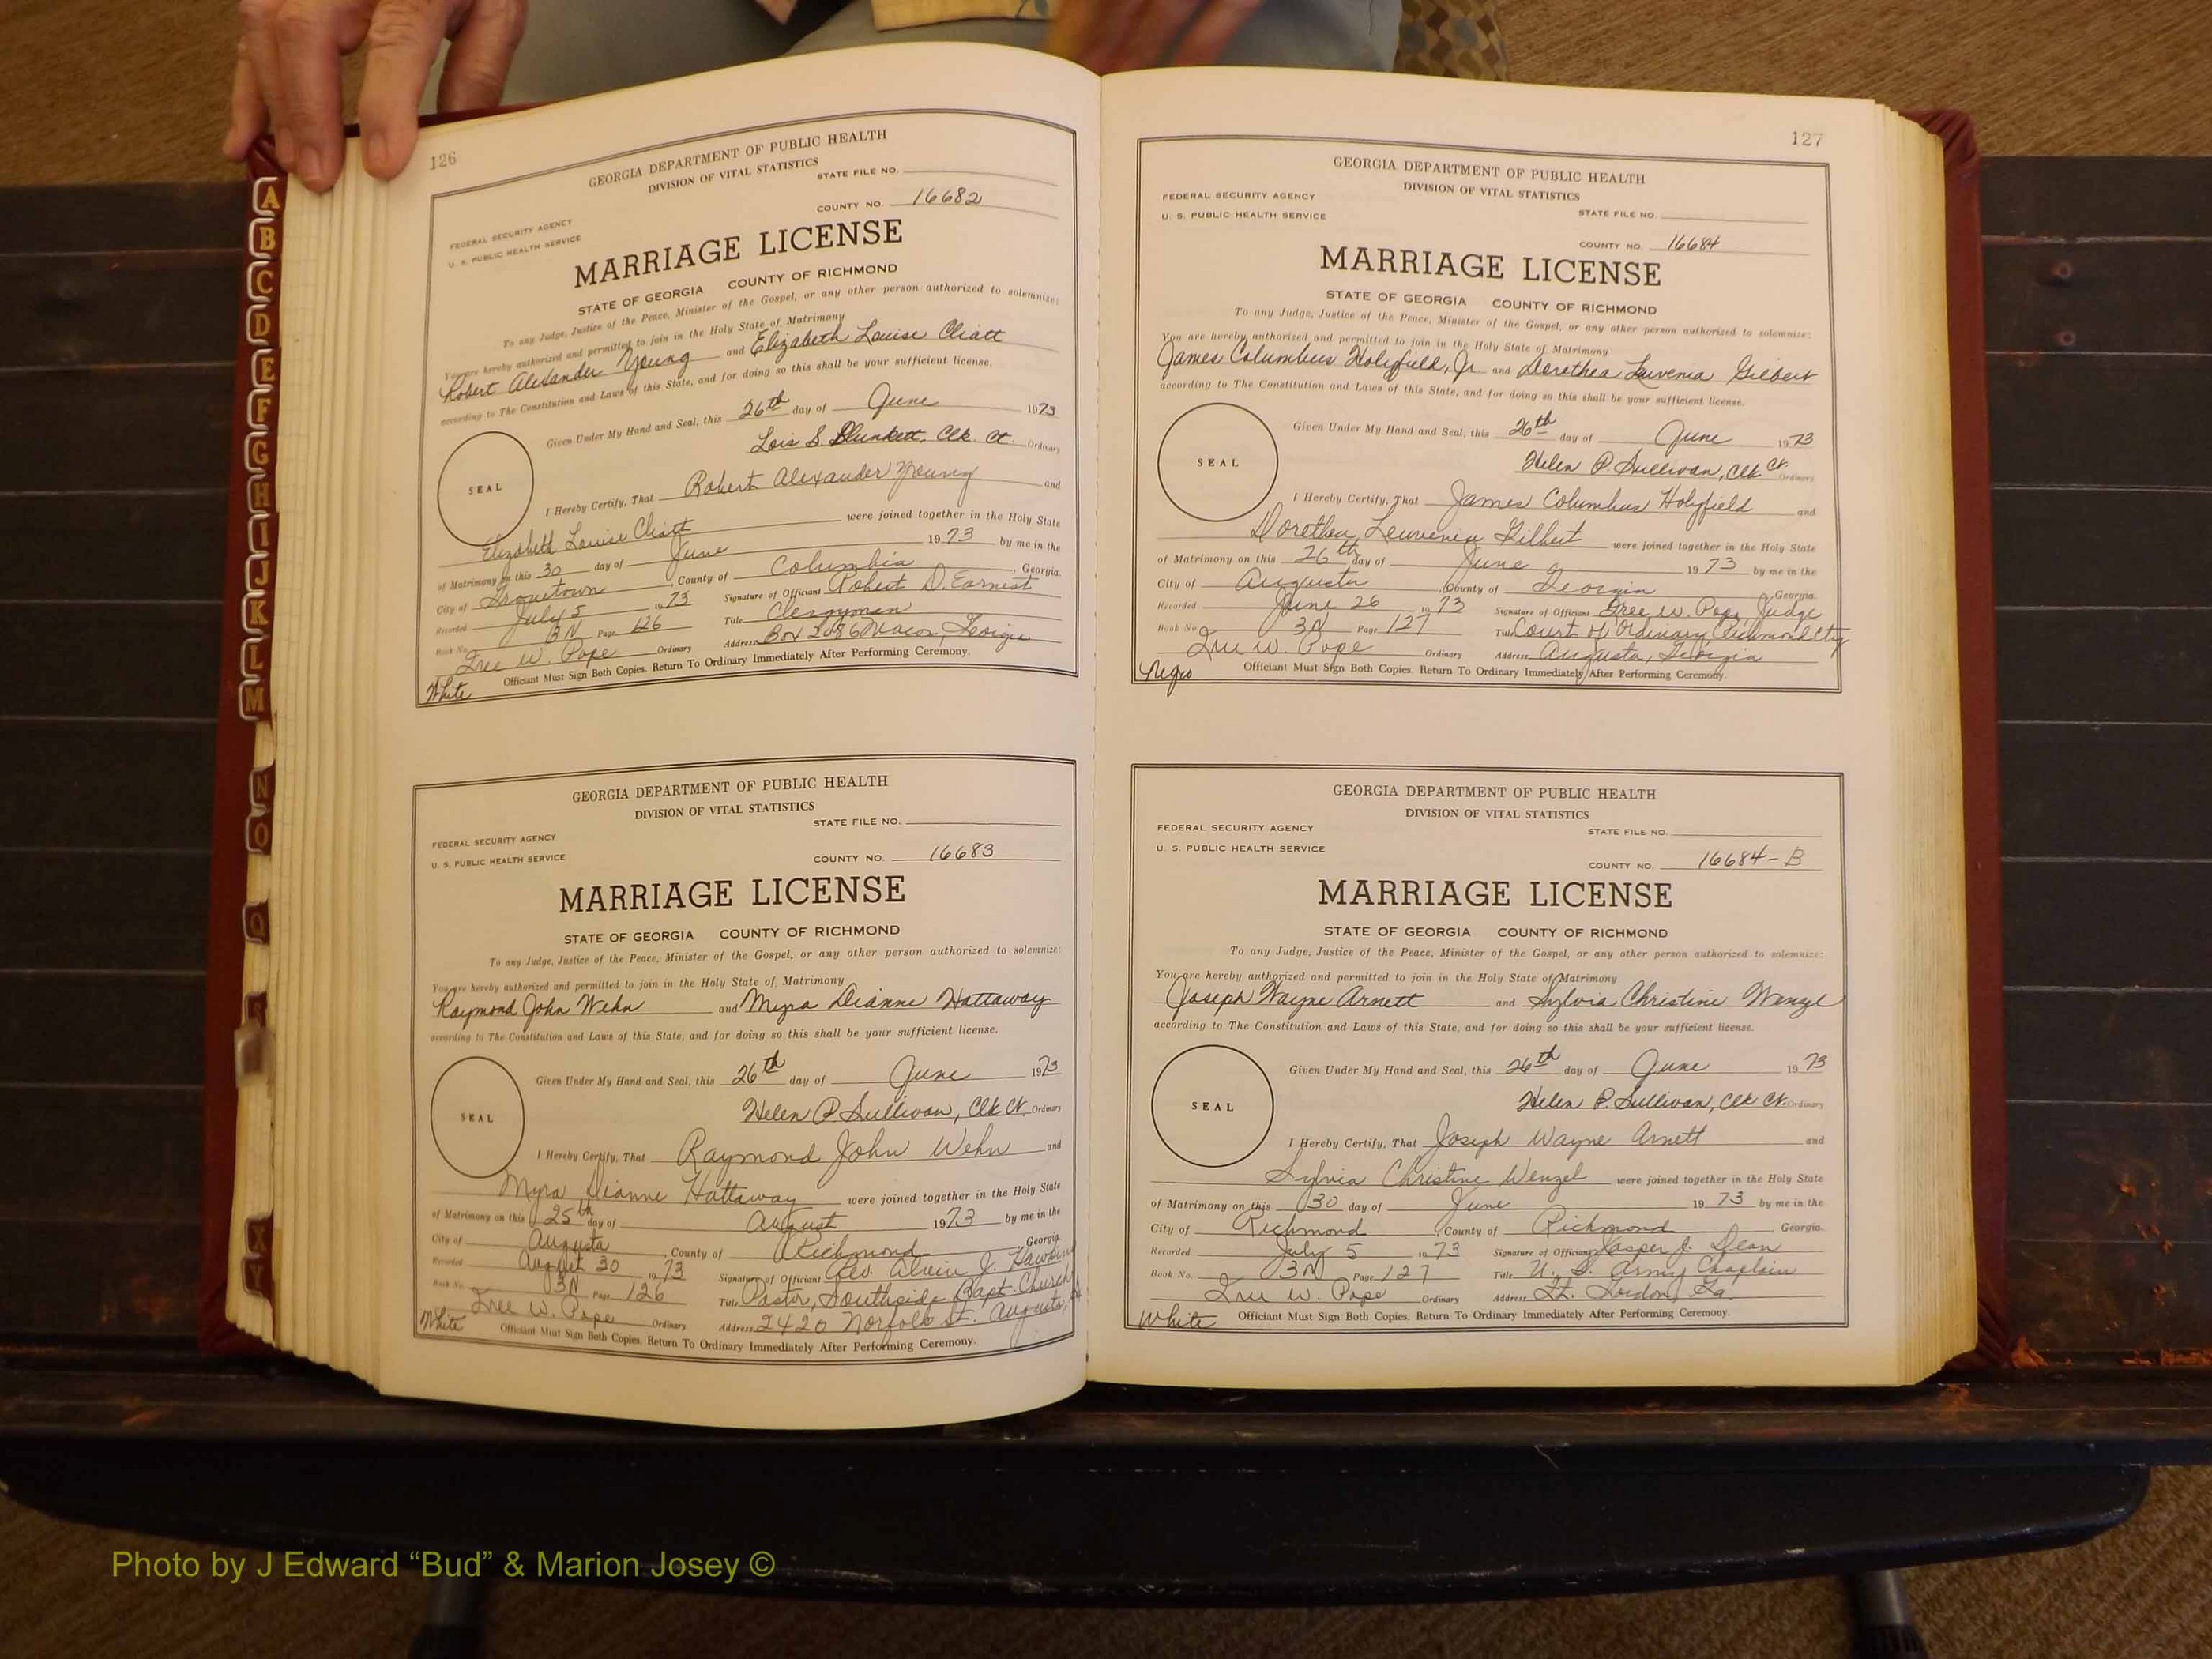 126
GEORGIA DEPARTMENT OF PUBLIC HEALTH
DIVISION OF VITAL STATISTICS
STATE FILE NO.
FEDERAL SECURITY AGENCY
U. S. PUBLIC HEALTH SERVICE
COUNTY NO. 16682
MARRIAGE LICENSE
STATE OF GEORGIA COUNTY OF RICHMOND
To any Judge, Justice of the Peace, Minister of the Gospel, or any other person authorized to solemnize:
You are hereby authorized and permitted to join in the Holy State of Matrimony
Robert Alexander Young and Elizabeth Louise Cliatt
according to The Constitution and Laws of this State, and for doing so this shall be your sufficient license.
Given Under My Hand and Seal, this 26th day of June 1973
Lois S. Plunkett, Clk. Ct. Ordinary
SEAL
I Hereby Certify, That Robert Alexander Young and
Elizabeth Louise Cliatt were joined together in the Holy State
of Matrimony on this 30 day of June 1973 by me in the
City of Grovetown, County of Columbia, Georgia.
Recorded July 5 1973 Signature of Officiant Robert D. Earnest
Book No. 3N Page 126 Title Clergyman
Address Box 2086 Macon, Georgia
Tree W. Pope Ordinary
Officiant Must Sign Both Copies. Return To Ordinary Immediately After Performing Ceremony.
White
GEORGIA DEPARTMENT OF PUBLIC HEALTH
DIVISION OF VITAL STATISTICS
STATE FILE NO.
FEDERAL SECURITY AGENCY
U. S. PUBLIC HEALTH SERVICE
COUNTY NO. 16683
MARRIAGE LICENSE
STATE OF GEORGIA COUNTY OF RICHMOND
To any Judge, Justice of the Peace, Minister of the Gospel, or any other person authorized to solemnize:
You are hereby authorized and permitted to join in the Holy State of Matrimony
Raymond John Wehn and Myra Dianne Hattaway
according to The Constitution and Laws of this State, and for doing so this shall be your sufficient license.
Given Under My Hand and Seal, this 26th day of June 1973
Helen P. Sullivan, Clk Ct. Ordinary
SEAL
I Hereby Certify, That Raymond John Wehn and
Myra Dianne Hattaway were joined together in the Holy State
of Matrimony on this 25th day of August 1973 by me in the
City of Augusta, County of Richmond Georgia.
Recorded August 30 1973 Signature of Officiant Rev. Alvin J. Hawkins
Book No. 3N Page 126 Title Pastor, Southside Bapt. Church
Tree W. Pope Ordinary Address 2420 Norfolk St. Augusta,
White Officiant Must Sign Both Copies. Return To Ordinary Immediately After Performing Ceremony.
127
GEORGIA DEPARTMENT OF PUBLIC HEALTH
DIVISION OF VITAL STATISTICS
FEDERAL SECURITY AGENCY
U. S. PUBLIC HEALTH SERVICE
STATE FILE NO.
COUNTY NO. 16684
MARRIAGE LICENSE
STATE OF GEORGIA COUNTY OF RICHMOND
To any Judge, Justice of the Peace, Minister of the Gospel, or any other person authorized to solemnize:
You are hereby authorized and permitted to join in the Holy State of Matrimony
James Columbus Holyfield, Jr. and Dorethea Luvenia Gilbert
according to The Constitution and Laws of this State, and for doing so this shall be your sufficient license.
Given Under My Hand and Seal, this 26th day of June 1973
Helen P. Sullivan, Clk Ct. Ordinary
SEAL
I Hereby Certify, That James Columbus Holyfield and
Dorethea Leuvenia Gilbert were joined together in the Holy State
of Matrimony on this 26th day of June 1973 by me in the
City of Augusta, County of Georgia, Georgia.
Recorded June 26 1973 Signature of Officiant Tree W. Pope, Judge
Book No. 3N Page 127 Title Court of Ordinary, Richmond Cty
Tree W. Pope Ordinary Address Augusta, Georgia
Negro Officiant Must Sign Both Copies. Return To Ordinary Immediately After Performing Ceremony.
GEORGIA DEPARTMENT OF PUBLIC HEALTH
DIVISION OF VITAL STATISTICS
FEDERAL SECURITY AGENCY
U. S. PUBLIC HEALTH SERVICE
STATE FILE NO.
COUNTY NO. 16684-B
MARRIAGE LICENSE
STATE OF GEORGIA COUNTY OF RICHMOND
To any Judge, Justice of the Peace, Minister of the Gospel, or any other person authorized to solemnize:
You are hereby authorized and permitted to join in the Holy State of Matrimony
Joseph Wayne Arnett and Sylvia Christine Wenzel
according to The Constitution and Laws of this State, and for doing so this shall be your sufficient license.
Given Under My Hand and Seal, this 26th day of June 1973
Helen P. Sullivan, Clk Ct. Ordinary
SEAL
I Hereby Certify, That Joseph Wayne Arnett and
Sylvia Christine Wenzel were joined together in the Holy State
of Matrimony on this 30 day of June 1973 by me in the
City of Richmond, County of Richmond Georgia.
Recorded July 5 1973 Signature of Officiant Jasper J. Dean
Book No. 3N Page 127 Title U. S. Army Chaplain
Tree W. Pope Ordinary Address Ft. Gordon, Ga.
White Officiant Must Sign Both Copies. Return To Ordinary Immediately After Performing Ceremony.
A
B
C
D
E
F
G
H
I
J
K
L
M
N
O
Q
X
Y
Photo by J Edward “Bud” & Marion Josey ©